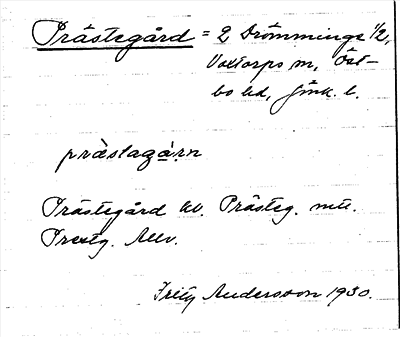 Prästegård = 2 Drömminge 1/2,
Voxtorps sn, Öst-
bo hd, Jönk. l.
præ̀stagạrn
Prästegård kv. Prästeg. mtl.
Prestg. Allv.
Fritz Andersson 1930.